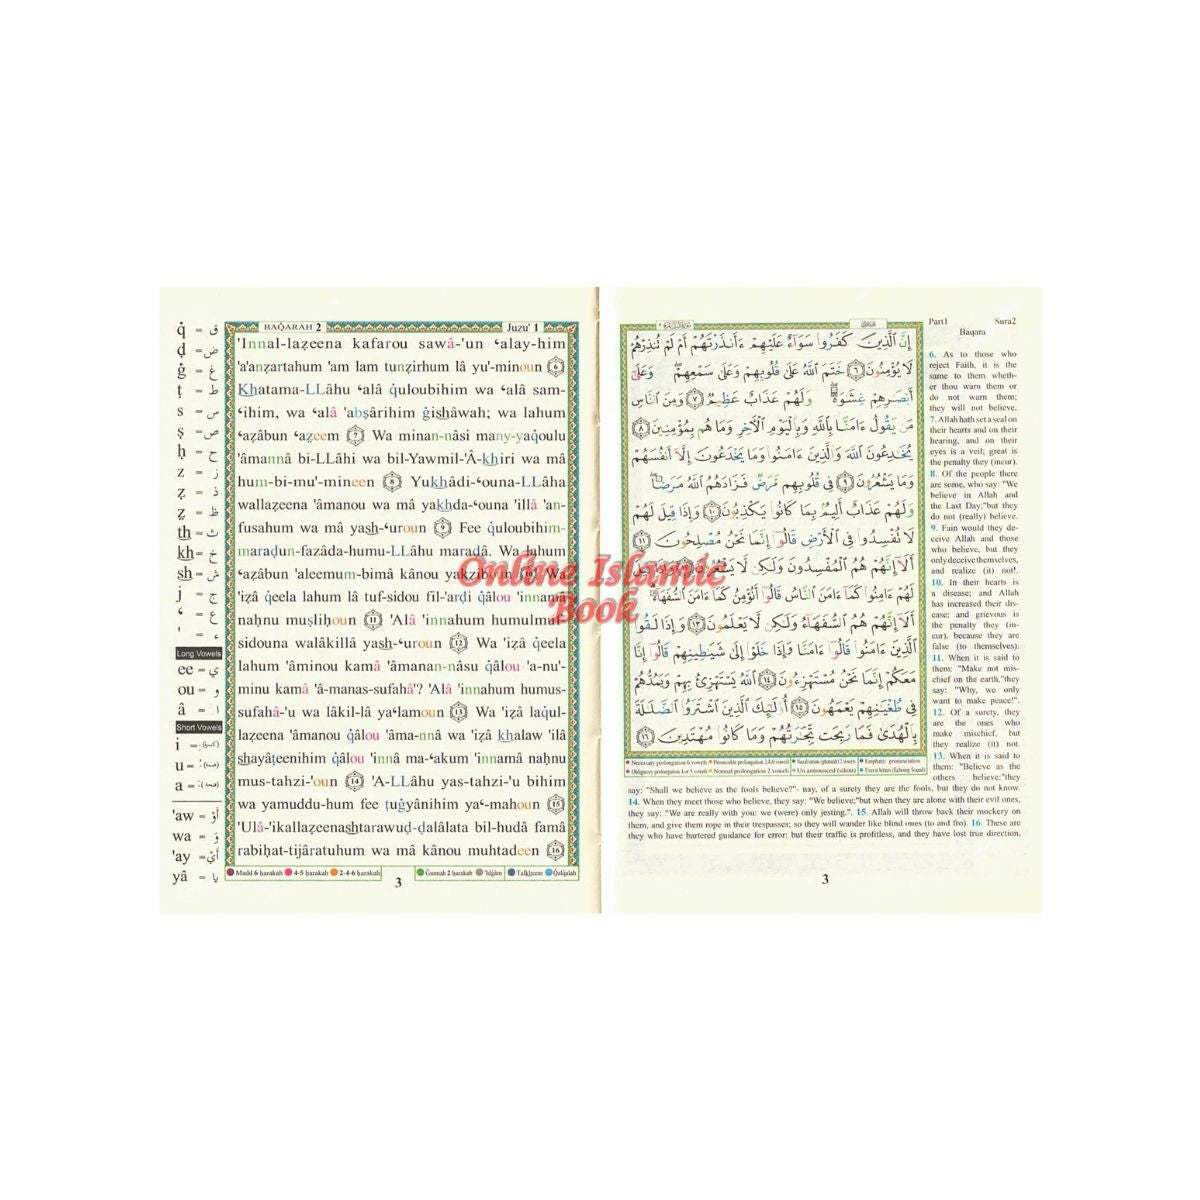 q̇ = ق
ḍ = ض
ġ = غ
ṭ = ط
s = س
ṣ = ص
ḥ = ح
z = ز
ẓ = ذ
ẓ = ظ
th = ث
kh = خ
sh = ش
j = ج
ʿ = ع
' = ء
Long Vowels
ee = ي
ou = و
â = ا
Short Vowels
i = (كسرة)
u = (ضمة)
a = (فتحة)
'aw = أَوْ
wa = وَ
'ay = أَيْ
yâ = يا
BAQ̇ARAH 2 Juzu' 1
'Innal-laẓeena kafarou sawâ-'un ʿalay-him
'a'anẓartahum 'am lam tunẓirhum lâ yu'-minoun 6
Khatama-LLâhu ʿalâ q̇uloubihim wa ʿalâ sam-
ʿihim, wa ʿalâ 'abṣârihim ġishâwah; wa lahum
ʿaẓâbun ʿaẓeem 7 Wa minan-nâsi many-yaq̇oulu
'âmannâ bi-LLâhi wa bil-Yawmil-'Â-khiri wa mâ
hum-bi-mu'-mineen 8 Yukhâdi-ʿouna-LLâha
wallaẓeena 'âmanou wa mâ yakhda-ʿouna 'illâ 'an-
fusahum wa mâ yash-ʿuroun 9 Fee q̇uloubihim-
maraḍun-fazâda-humu-LLâhu maraḍâ. Wa lahum
ʿaẓâbun 'aleemum-bimâ kânou yakẓiboun 10 Wa
'iẓâ q̇eela lahum lâ tuf-sidou fil-'arḍi q̇âlou 'innamâ
naḥnu muṣliḥoun 11 'Alâ 'innahum humulmuf-
sidouna walâkillâ yash-ʿuroun 12 Wa 'iẓâ q̇eela
lahum 'âminou kamâ 'âmanan-nâsu q̇âlou 'a-nu'-
minu kamâ 'â-manas-sufahâ'? 'Alâ 'innahum humus-
sufahâ-'u wa lâkil-lâ yaʿlamoun 13 Wa 'iẓâ laqul-
laẓeena 'âmanou q̇âlou 'âma-nnâ wa 'iẓâ khalaw 'ilâ
shayâṭeenihim q̇âlou 'innâ ma-ʿakum 'innamâ naḥnu
mus-tahzi-'oun 14 'A-LLâhu yas-tahzi-'u bihim
wa yamuddu-hum fee ṭuġyânihim yaʿ-mahoun 15
'Ulâ-'ikallaẓeenashtarawuḍ-ḍalâlata bil-hudâ famâ
rabiḥat-tijâratuhum wa mâ kânou muhtadeen 16
Madd 6 ḥarakah 4-5 ḥarakah 2-4-6 ḥarakah Gunnah 2 ḥarakah 'Idġâm Tafkheem Q̇alq̇alah
3
إِنَّ الَّذِينَ كَفَرُوا سَوَاءٌ عَلَيْهِمْ ءَأَنذَرْتَهُمْ أَمْ لَمْ تُنذِرْهُمْ
لَا يُؤْمِنُونَ ٦ خَتَمَ اللَّهُ عَلَىٰ قُلُوبِهِمْ وَعَلَىٰ سَمْعِهِمْ وَعَلَىٰ
أَبْصَٰرِهِمْ غِشَٰوَةٌ وَلَهُمْ عَذَابٌ عَظِيمٌ ٧ وَمِنَ النَّاسِ
مَن يَقُولُ ءَامَنَّا بِاللَّهِ وَبِالْيَوْمِ الْءَاخِرِ وَمَا هُم بِمُؤْمِنِينَ ٨
يُخَٰدِعُونَ اللَّهَ وَالَّذِينَ ءَامَنُوا وَمَا يَخْدَعُونَ إِلَّا أَنفُسَهُمْ
وَمَا يَشْعُرُونَ ٩ فِي قُلُوبِهِم مَّرَضٌ فَزَادَهُمُ اللَّهُ مَرَضًا
وَلَهُمْ عَذَابٌ أَلِيمٌ بِمَا كَانُوا يَكْذِبُونَ ١٠ وَإِذَا قِيلَ لَهُمْ
لَا تُفْسِدُوا فِي الْأَرْضِ قَالُوا إِنَّمَا نَحْنُ مُصْلِحُونَ ١١
أَلَا إِنَّهُمْ هُمُ الْمُفْسِدُونَ وَلَٰكِن لَّا يَشْعُرُونَ ١٢ وَإِذَا قِيلَ
لَهُمْ ءَامِنُوا كَمَا ءَامَنَ النَّاسُ قَالُوا أَنُؤْمِنُ كَمَا ءَامَنَ السُّفَهَاءُ
أَلَا إِنَّهُمْ هُمُ السُّفَهَاءُ وَلَٰكِن لَّا يَعْلَمُونَ ١٣ وَإِذَا لَقُوا
الَّذِينَ ءَامَنُوا قَالُوا ءَامَنَّا وَإِذَا خَلَوْا إِلَىٰ شَيَٰطِينِهِمْ قَالُوا إِنَّا
مَعَكُمْ إِنَّمَا نَحْنُ مُسْتَهْزِءُونَ ١٤ اللَّهُ يَسْتَهْزِئُ بِهِمْ وَيَمُدُّهُمْ
فِي طُغْيَٰنِهِمْ يَعْمَهُونَ ١٥ أُولَٰئِكَ الَّذِينَ اشْتَرَوُا الضَّلَٰلَةَ
بِالْهُدَىٰ فَمَا رَبِحَت تِّجَٰرَتُهُمْ وَمَا كَانُوا مُهْتَدِينَ ١٦
Necessary prolongation 6 vowels Permissible prolongation 2,4,6 vowels Nazalization (ghunnah) 2 vowels Emphatic pronunciation
Obligatory prolongation 4 or 5 vowels Normal prolongation 2 vowels Un announced (silent) Unrest letters (Echoing Sound)
Part1 Sura2
Baqara
6. As to those who
reject Faith, it is the
same to them wheth-
er thou warn them or
do not warn them;
they will not believe.
7. Allah hath set a seal on
their hearts and on their
hearing, and on their
eyes is a veil; great is
the penalty they (incur).
8. Of the people there
are some, who say: "We
believe in Allah and
the Last Day;"but they
do not (really) believe.
9. Fain would they de-
ceive Allah and those
who believe, but they
only deceive themselves,
and realize (it) not!.
10. In their hearts is
a disease; and Allah
has increased their dis-
ease: and grievous is
the penalty they (in-
cur), because they are
false (to themselves).
11. When it is said to
them: "Make not mis-
chief on the earth,"they
say: "Why, we only
want to make peace!".
12. Of a surety, they
are the ones who
make mischief, but
they realize (it) not.
13. When it is said to
them: "Believe as the
others believe:"they
say: "Shall we believe as the fools believe?"- nay, of a surety they are the fools, but they do not know.
14. When they meet those who believe, they say: "We believe;"but when they are alone with their evil ones,
they say: "We are really with you: we (were) only jesting.". 15. Allah will throw back their mockery on
them, and give them rope in their trespasses; so they will wander like blind ones (to and fro). 16. These are
they who have bartered guidance for error: but their traffic is profitless, and they have lost true direction,
3
Online Islamic
Book